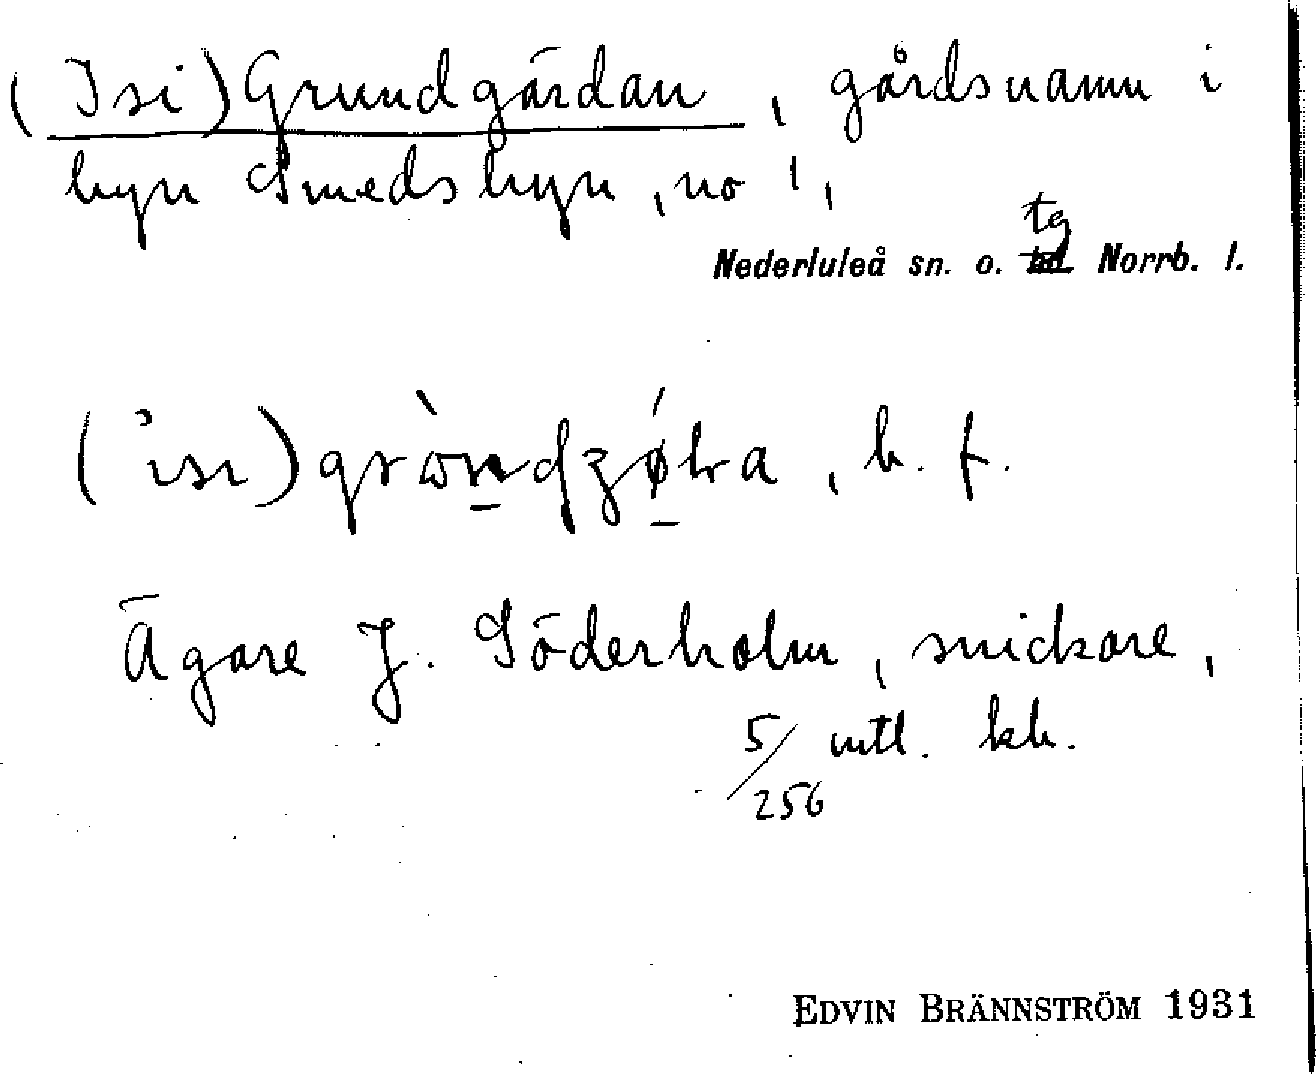 (Isi)Grundgärdan, gårdsnamn i
byn Smedsbyn, no 1,
Nederluleå sn. o. tg Norrb. l.
b. f.
Ägare J. Söderholm, snickare,
5/256 mtl. kb.
EDVIN BRÄNNSTRÖM 1931